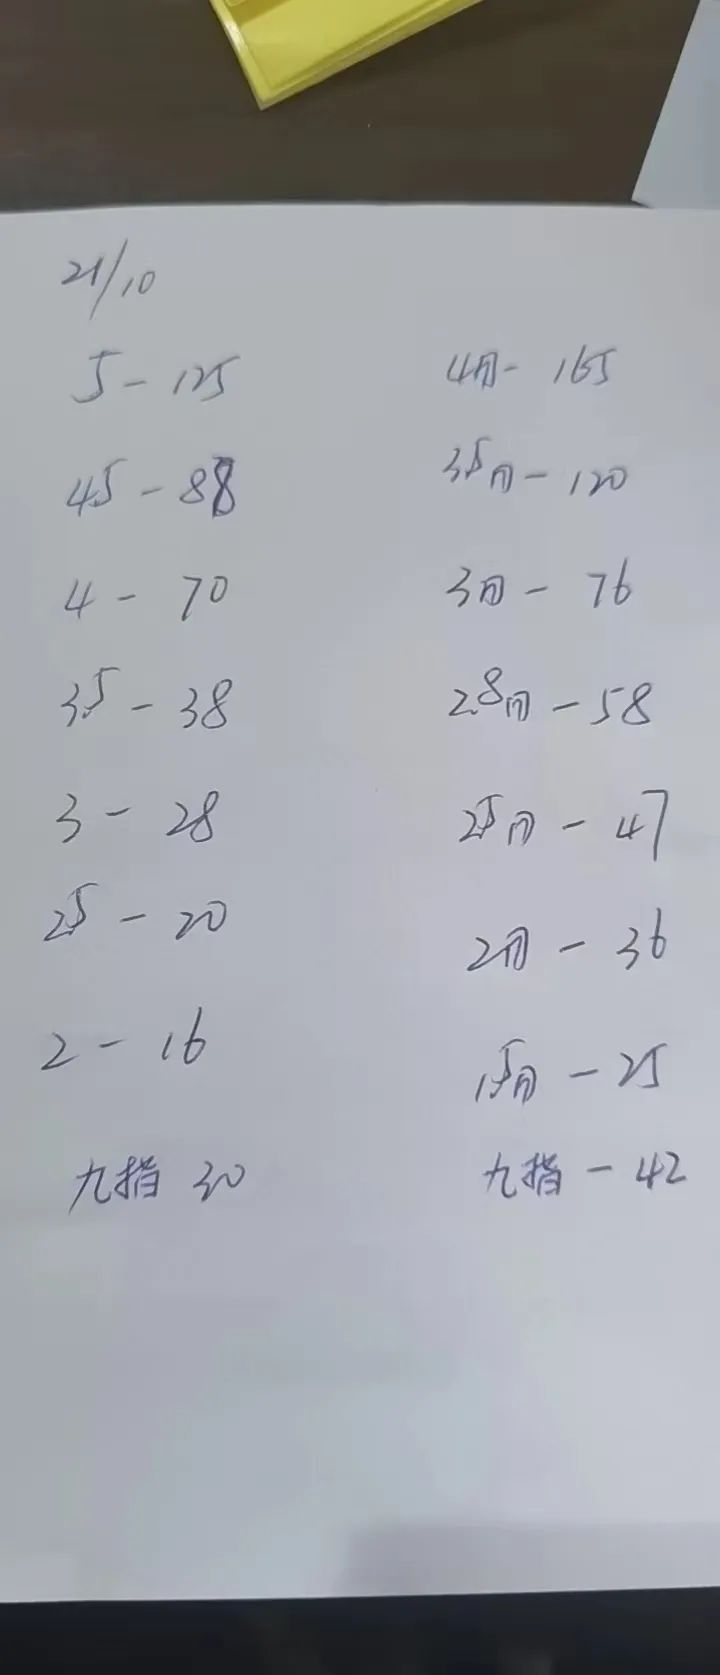 21/10
5 - 125
4.5 - 88
4 - 70
3.5 - 38
3 - 28
2.5 - 20
2 - 16
九指 30
4母 - 165
3.5母 - 120
3母 - 76
2.8母 - 58
2.5母 - 47
2母 - 36
1.5母 - 25
九指 - 42